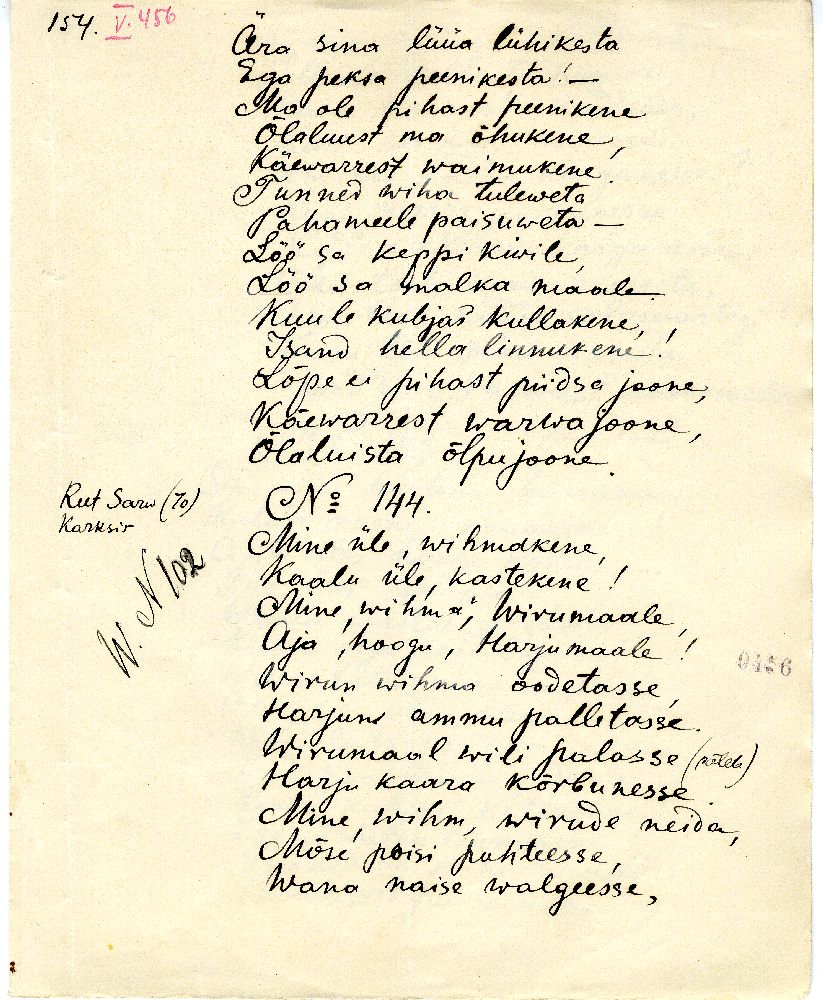 154. V. 456
Ära sina lüüa lühikesta
Ega peksa peenikesta! —
Ma ole pihast peenikene
Õlaluust ma õhukene,
Käewarrest waimukene.
Tunned wiha tuleweta
Pahameele paisuweta —
Löö sa keppi kiwile,
Löö sa malka maale.
Kuule kubjas kullakene,
Isand hella linnukene!
Lõpe ei pihast piidsa joone,
Käewarrest warwa joone,
Õlaluista õlpujoone.
Reet Sarw (70)
Karksir
No 144.
W. N 102
Mine üle, wihmakene,
Kaalu üle, kastekene!
Mine, wihma, Wirumaale,
Aja, hoogu, Harjumaale!
0456
Wirun wihma oodetasse,
Harjuns ammu palletasse.
Wirumaal wili palasse (nõleb)
Harju kaara kõrbunesse.
Mine, wihm, wirude neida,
Mõse poisi puhteesse,
Wana naise walgeesse,